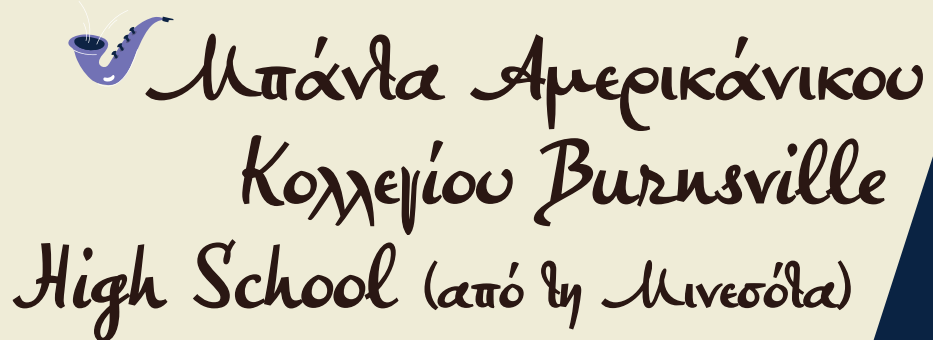 Μπάντα Αμερικάνικου
Κολλεγίου Burnsville
High School (από τη Μινεσότα)